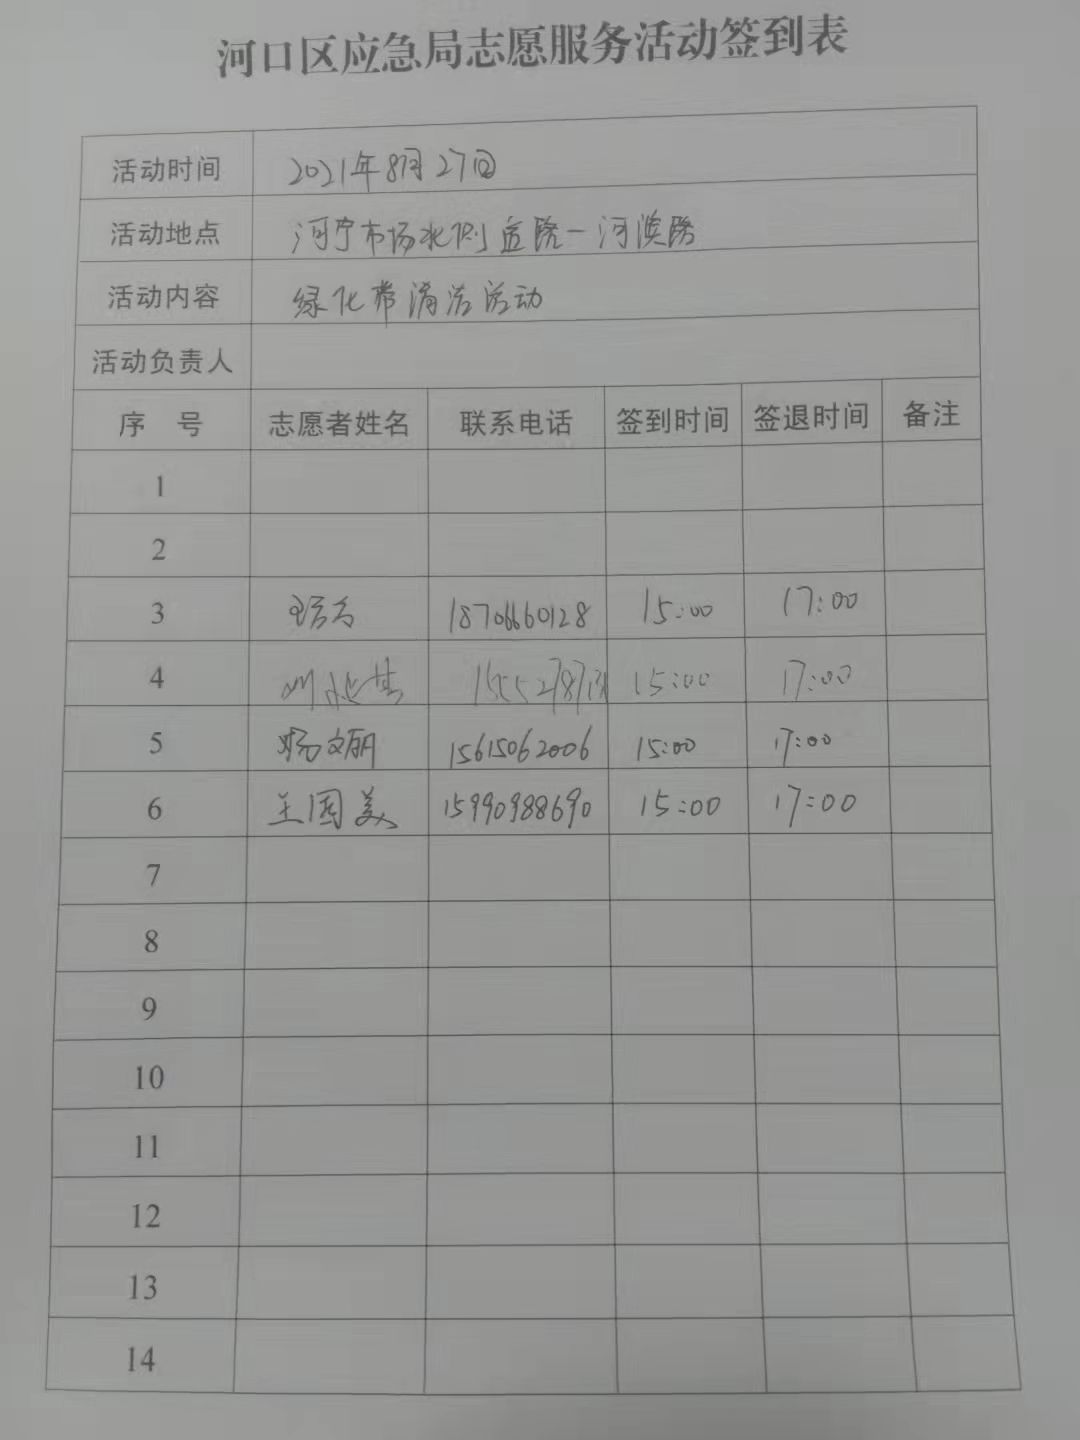 河口区应急局志愿服务活动签到表
活动时间 2021年8月27日
活动地点 河宁市场北侧 一河滨路
活动内容 绿化带清洁活动
活动负责人
序 号 志愿者姓名 联系电话 签到时间 签退时间 备注
1
2
3 18706660128 15:00 17:00
4 15:00 17:00
5 杨文丽 15615062006 15:00 17:00
6 王国美 15990988690 15:00 17:00
7
8
9
10
11
12
13
14